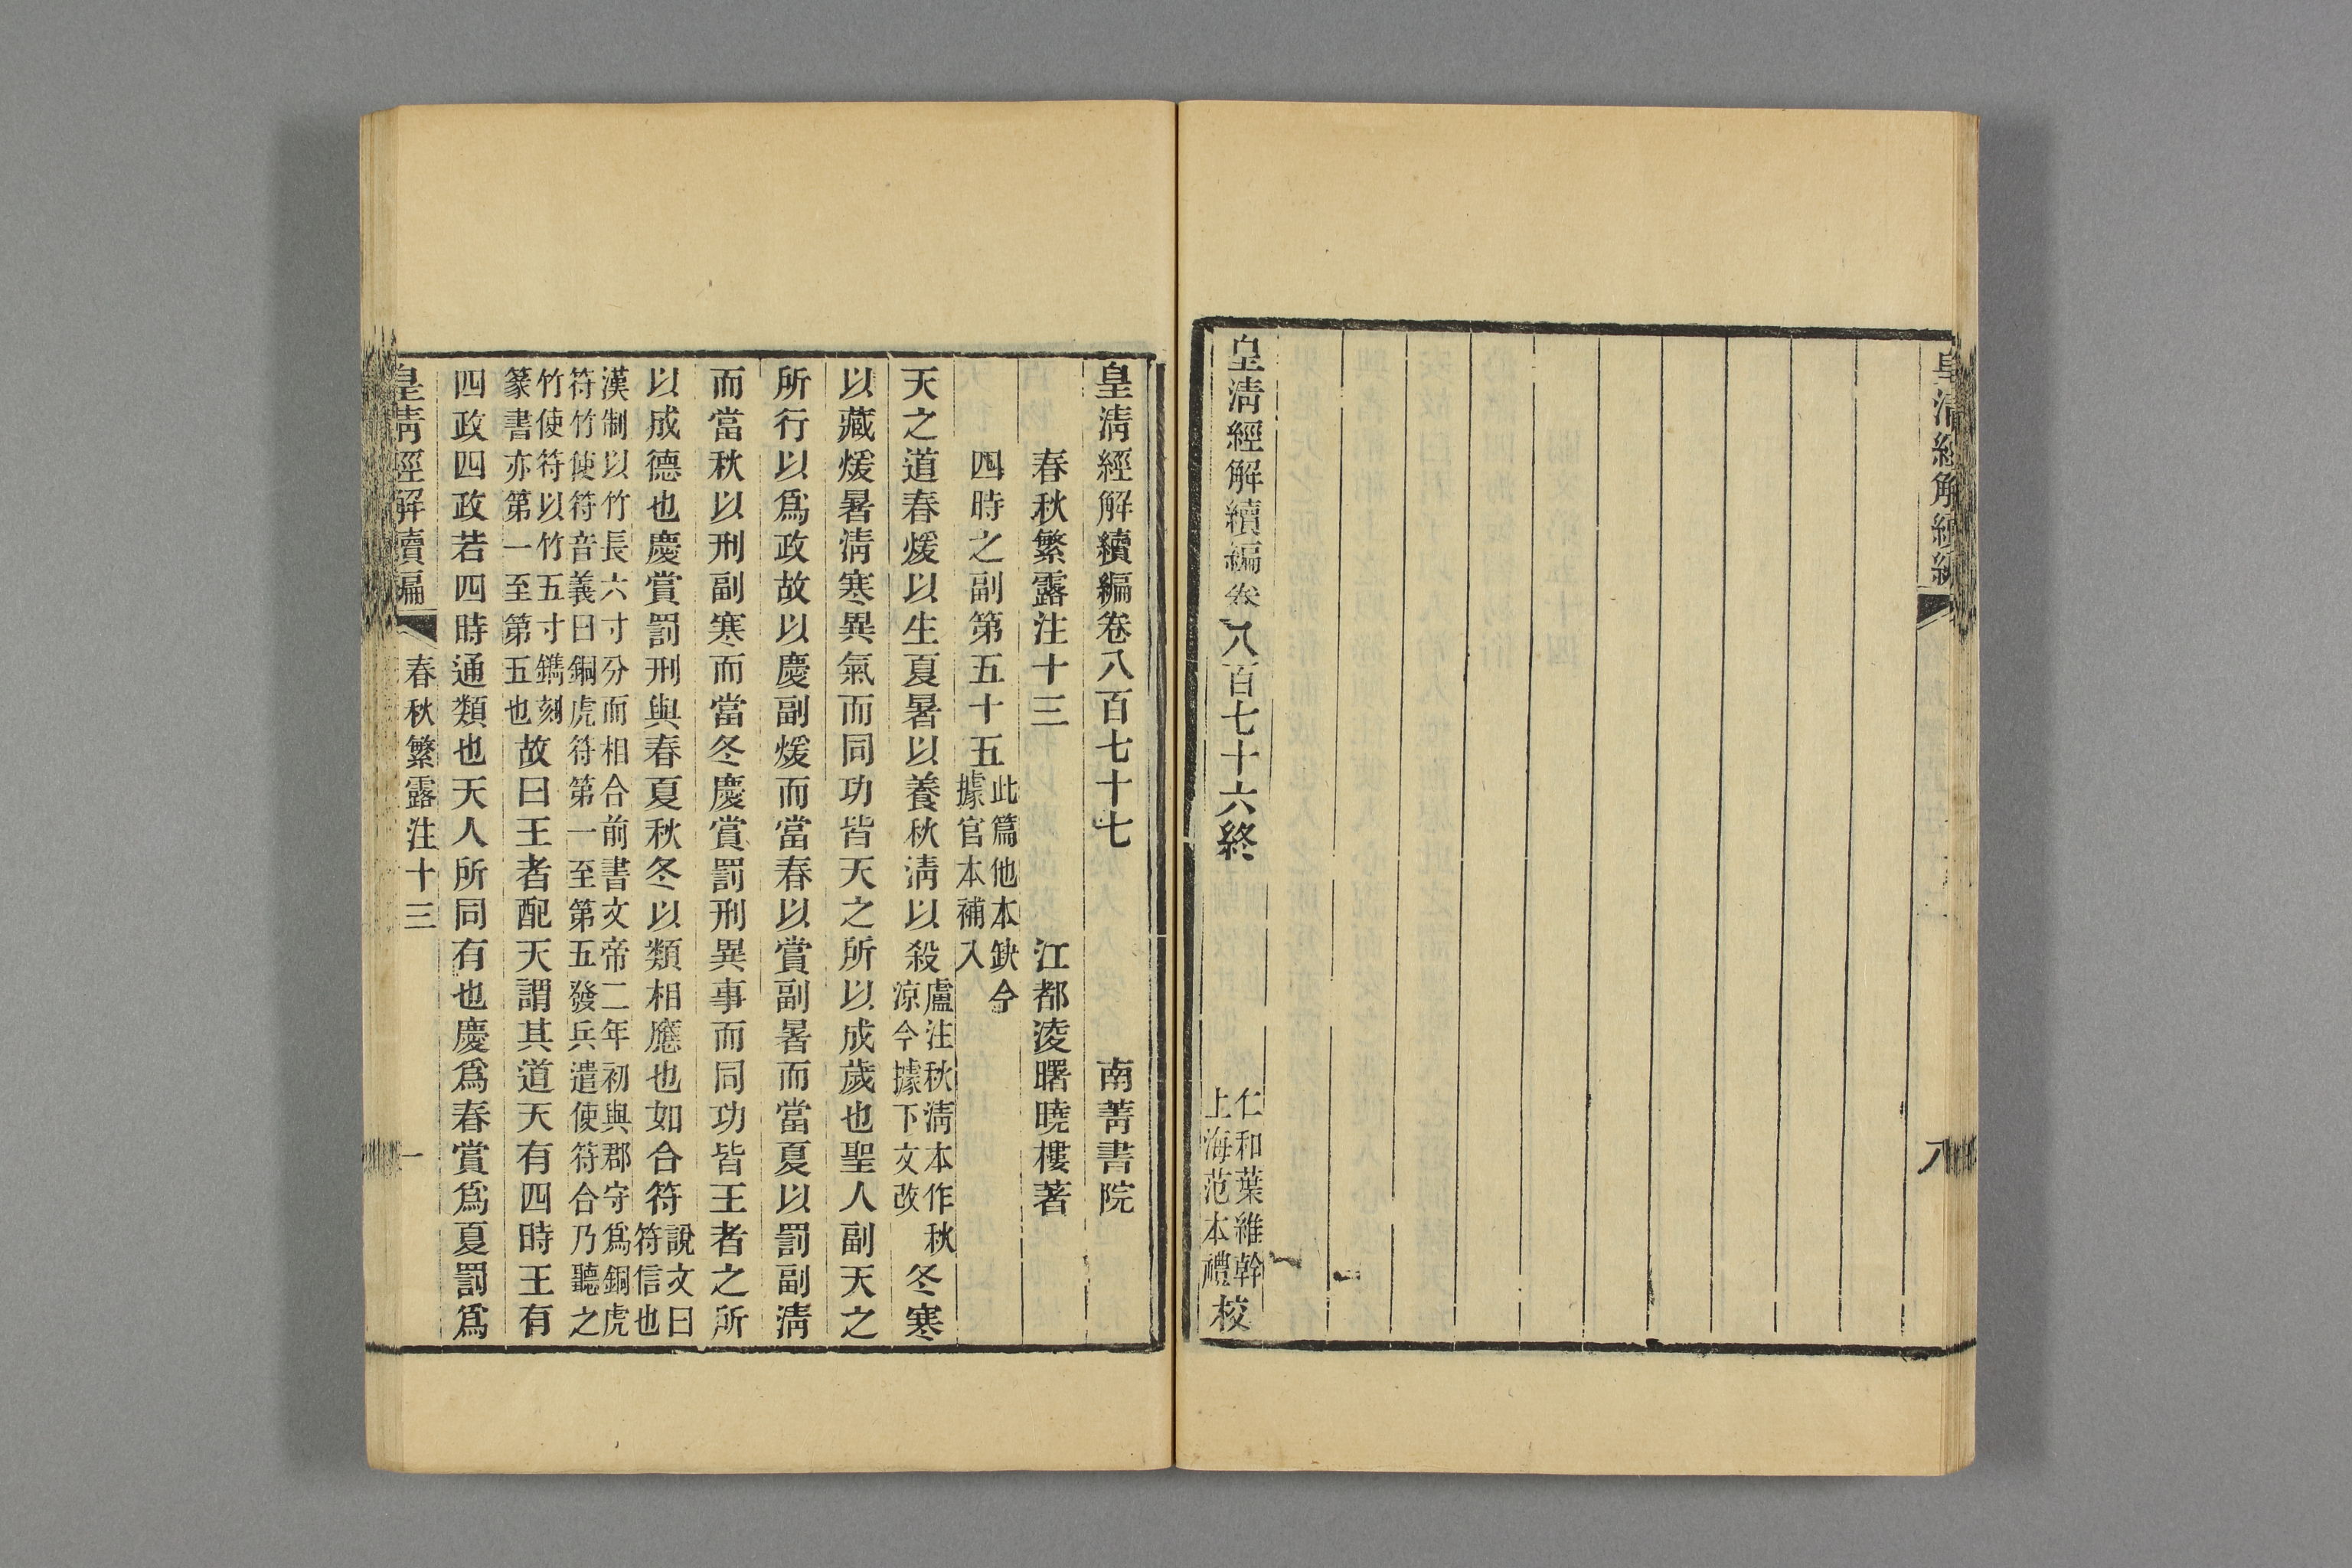 皇清經解續編
八
皇清經解續編卷八百七十六終
仁和葉維幹
上海范本禮
校
皇清經解續編卷八百七十七 南菁書院
春秋繁露注十三 江都淩曙曉樓著
四時之副第五十五此篇他本缺今據官本補入
天之道春煖以生夏暑以養秋淸以殺盧注秋淸本作秋涼今據下文改冬寒
以藏煖暑淸寒異氣而同功皆天之所以成歲也聖人副天之
所行以爲政故以慶副煖而當春以賞副暑而當夏以罰副淸
而當秋以刑副寒而當冬慶賞罰刑異事而同功皆王者之所
以成德也慶賞罰刑與春夏秋冬以類相應也如合符說文曰符信也
漢制以竹長六寸分而相合前書文帝二年初與郡守爲銅虎
符竹使符音義曰銅虎符第一至第五發兵遣使符合乃聽之
竹使符以竹五寸鐫刻篆書亦第一至第五也故曰王者配天謂其道天有四時王有
四政四政若四時通類也天人所同有也慶爲春賞爲夏罰爲
皇清經解續編 春秋繁露注十三 一